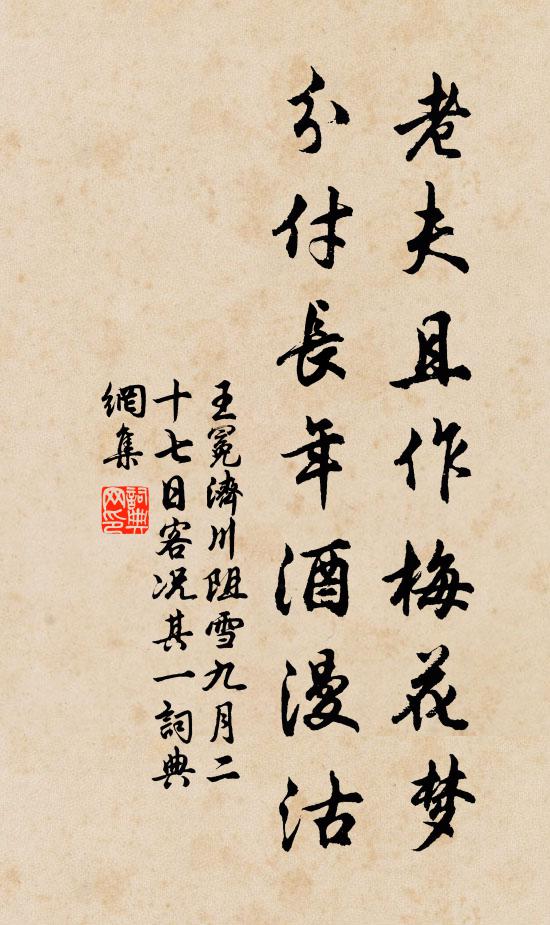 老夫且作梅花梦
分付长年酒漫沽
王冕濟川阻雪九月二
十七日客况其一詞典
網集
詞典网印